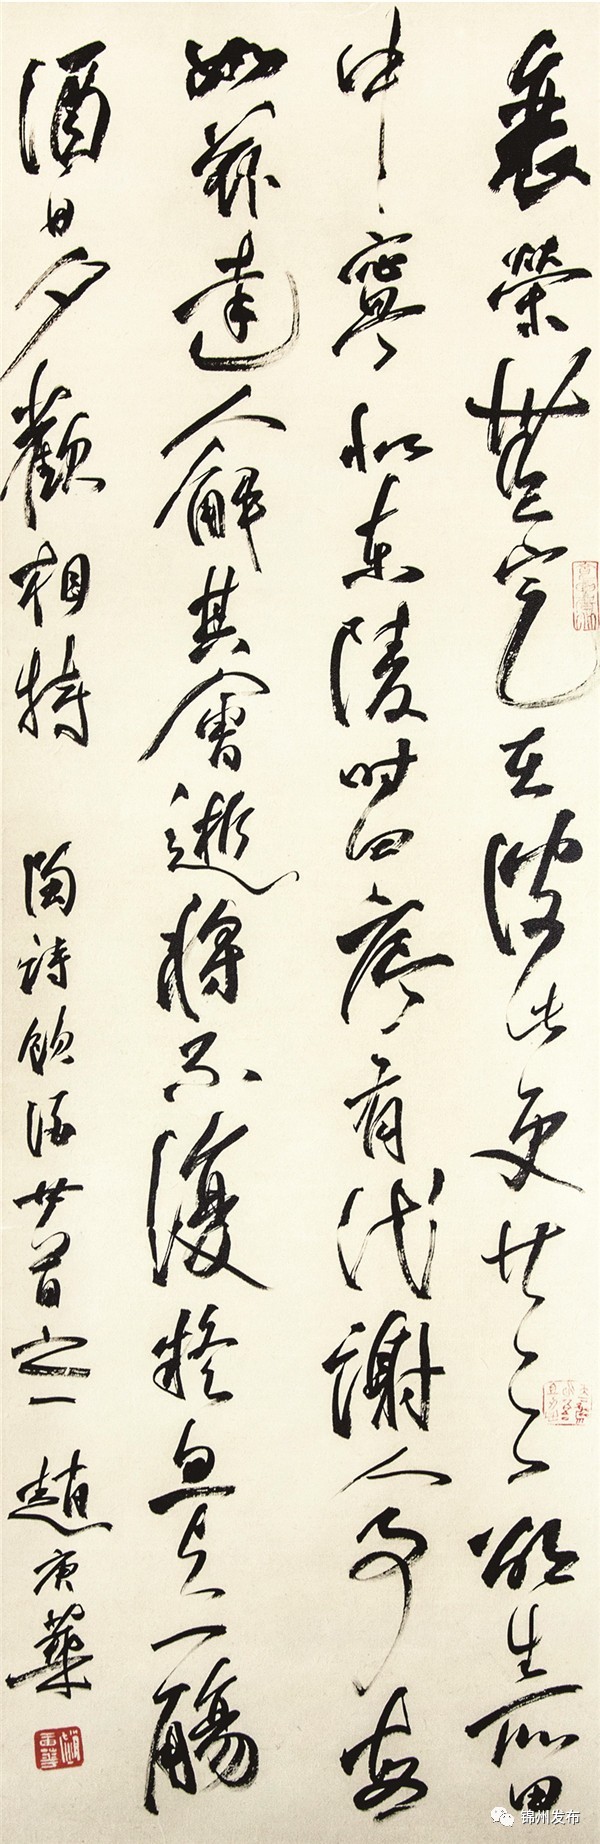 衰榮無定在彼此更共之邵生瓜田
中寧似東陵時有代謝人事每
如茲達人解其會逝將不復疑忽與一觴
酒日夕歡相持 陶詩飲酒廿首之一 趙庚華
锦州发布